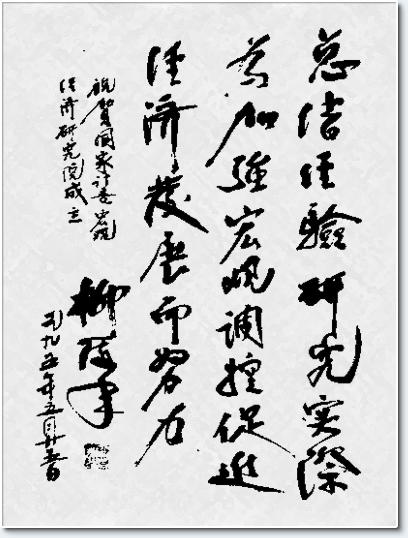 总结经验研究实际
为加强宏观调控促进
经济发展而努力
祝贺国家计委宏观
经济研究院成立
柳随年
一九九五年五月廿五日